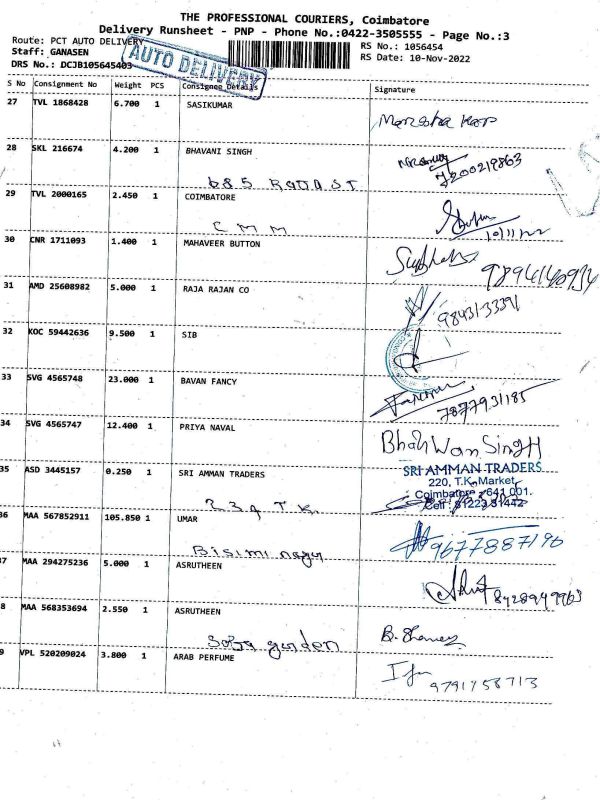 THE PROFESSIONAL COURIERS, Coimbatore
Delivery Runsheet - PNP - Phone No.:0422-3505555 - Page No.:3
Route: PCT AUTO DELIVERY
RS No.: 1056454
Staff: GANASEN
RS Date: 10-Nov-2022
DRS No.: DCJB105645403
AUTO DELIVERY
S No Consignment No Weight PCS Consignee Details Signature
27 TVL 1868428 6.700 1 SASIKUMAR
28 SKL 216674 4.200 1 BHAVANI SINGH
7200219863
685 RAJA ST
29 TVL 2000165 2.450 1 COIMBATORE
10/11/22
C M M
30 CNR 1711093 1.400 1 MAHAVEER BUTTON
9894140934
31 AMD 25608982 5.000 1 RAJA RAJAN CO
9843133391
32 KOC 59442636 9.500 1 SIB
33 SVG 4565748 23.000 1 BAVAN FANCY
7877931185
34 SVG 4565747 12.400 1 PRIYA NAVAL
Bhah Wan Singh
35 ASD 3445157 0.250 1 SRI AMMAN TRADERS
SRI AMMAN TRADERS
220, T.K. Market,
Coimbatore - 641 001.
234 T.K.
36 MAA 567852911 105.850 1 UMAR
9677887190
Bisimi nagar
37 MAA 294275236 5.000 1 ASRUTHEEN
8428949963
38 MAA 568353694 2.550 1 ASRUTHEEN
Soba garden
39 VPL 520209024 3.800 1 ARAB PERFUME
9791758713